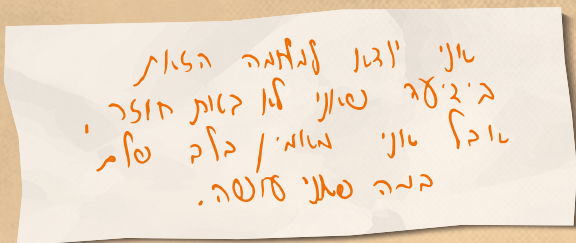 אני יודא למלחמה הזאת
בידיעה שאני לא בטוח חוזר,
אבל אני מאמין בלב שלם
במה שאני עושה.